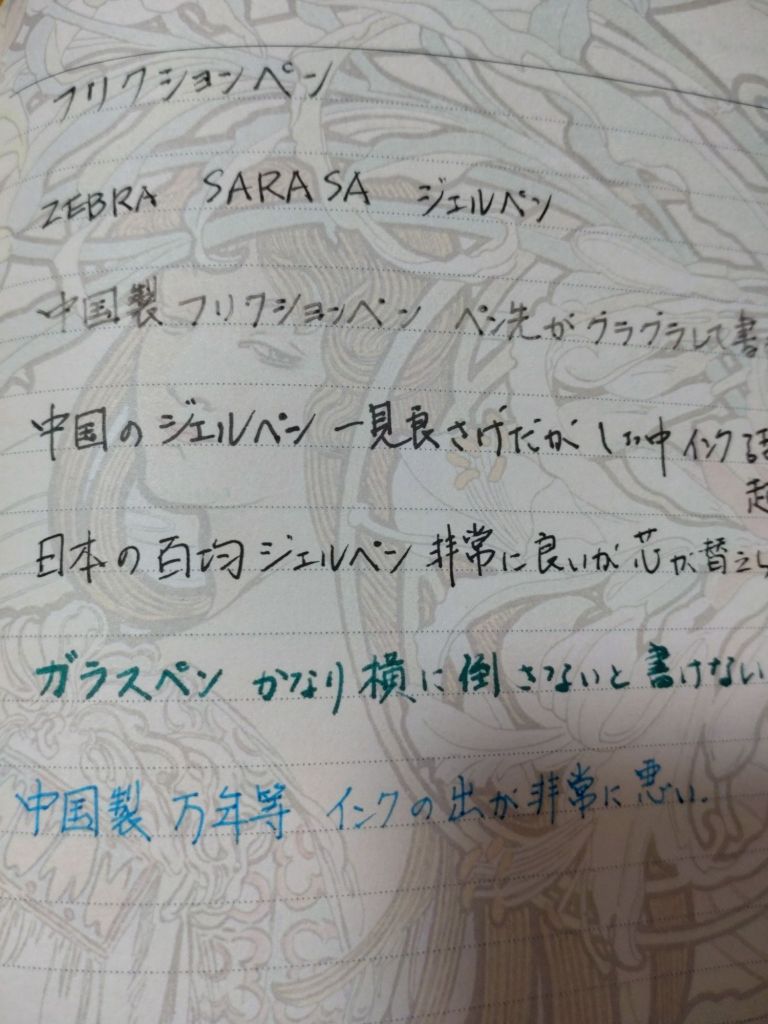 フリクションペン
ZEBRA SARASA ジェルペン
中国製 フリクションペン ペン先がグラグラして書
中国のジェルペン 一見良さげだが しょ中 インク
起
日本の百均ジェルペン 非常に良いが芯が替えら
ガラスペン かなり横に倒さないと書けない
中国製 万年筆 インクの出が非常に悪い.